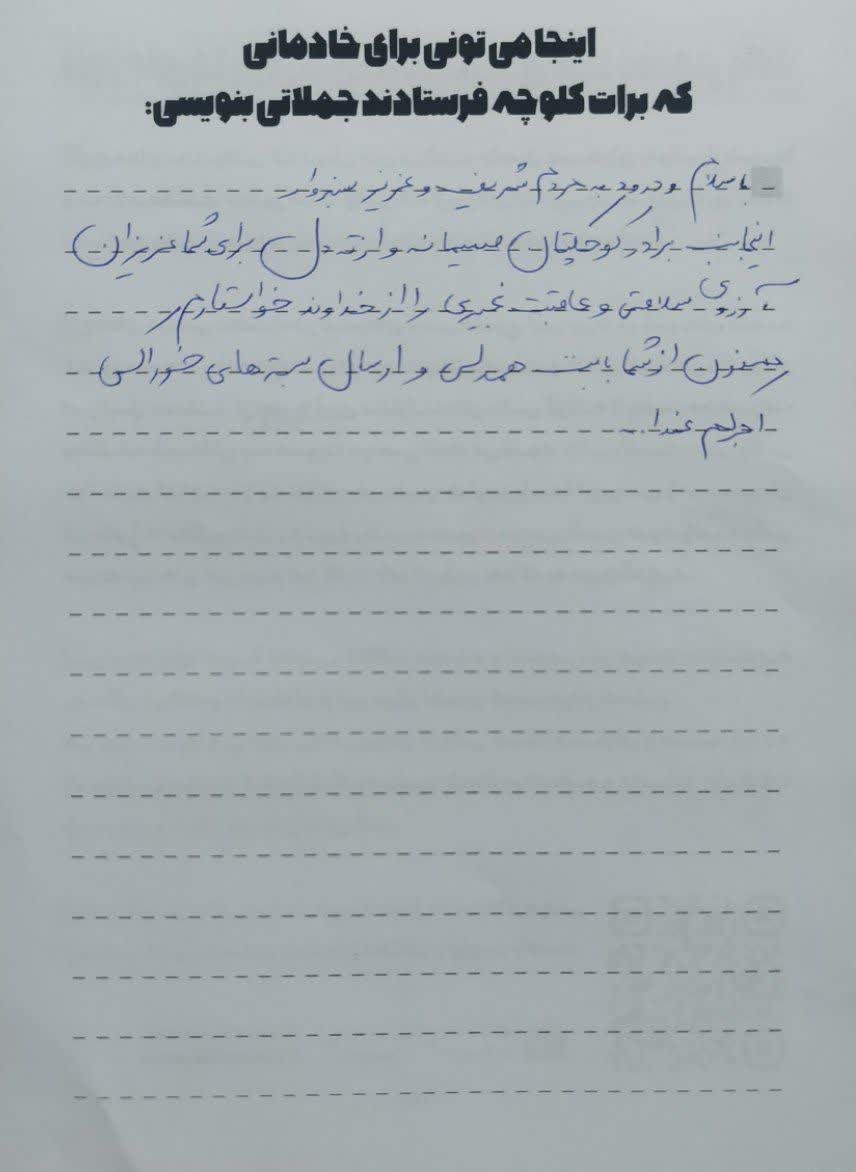 اینجا می تونی برای خادمانی
که برات کلوچه فرستادند جملاتی بنویسی:
با سلام و درود به مردم شریف و عزیز سبزوار
اینجانب برادر کوچکتان صمیمانه و از ته دل برای شما عزیزان
آرزوی سلامتی و عاقبت بخیری را از خداوند خواستارم
ممنون از شما بابت همدلی و ارسال بسته های خوراکی
اجرکم عندا...